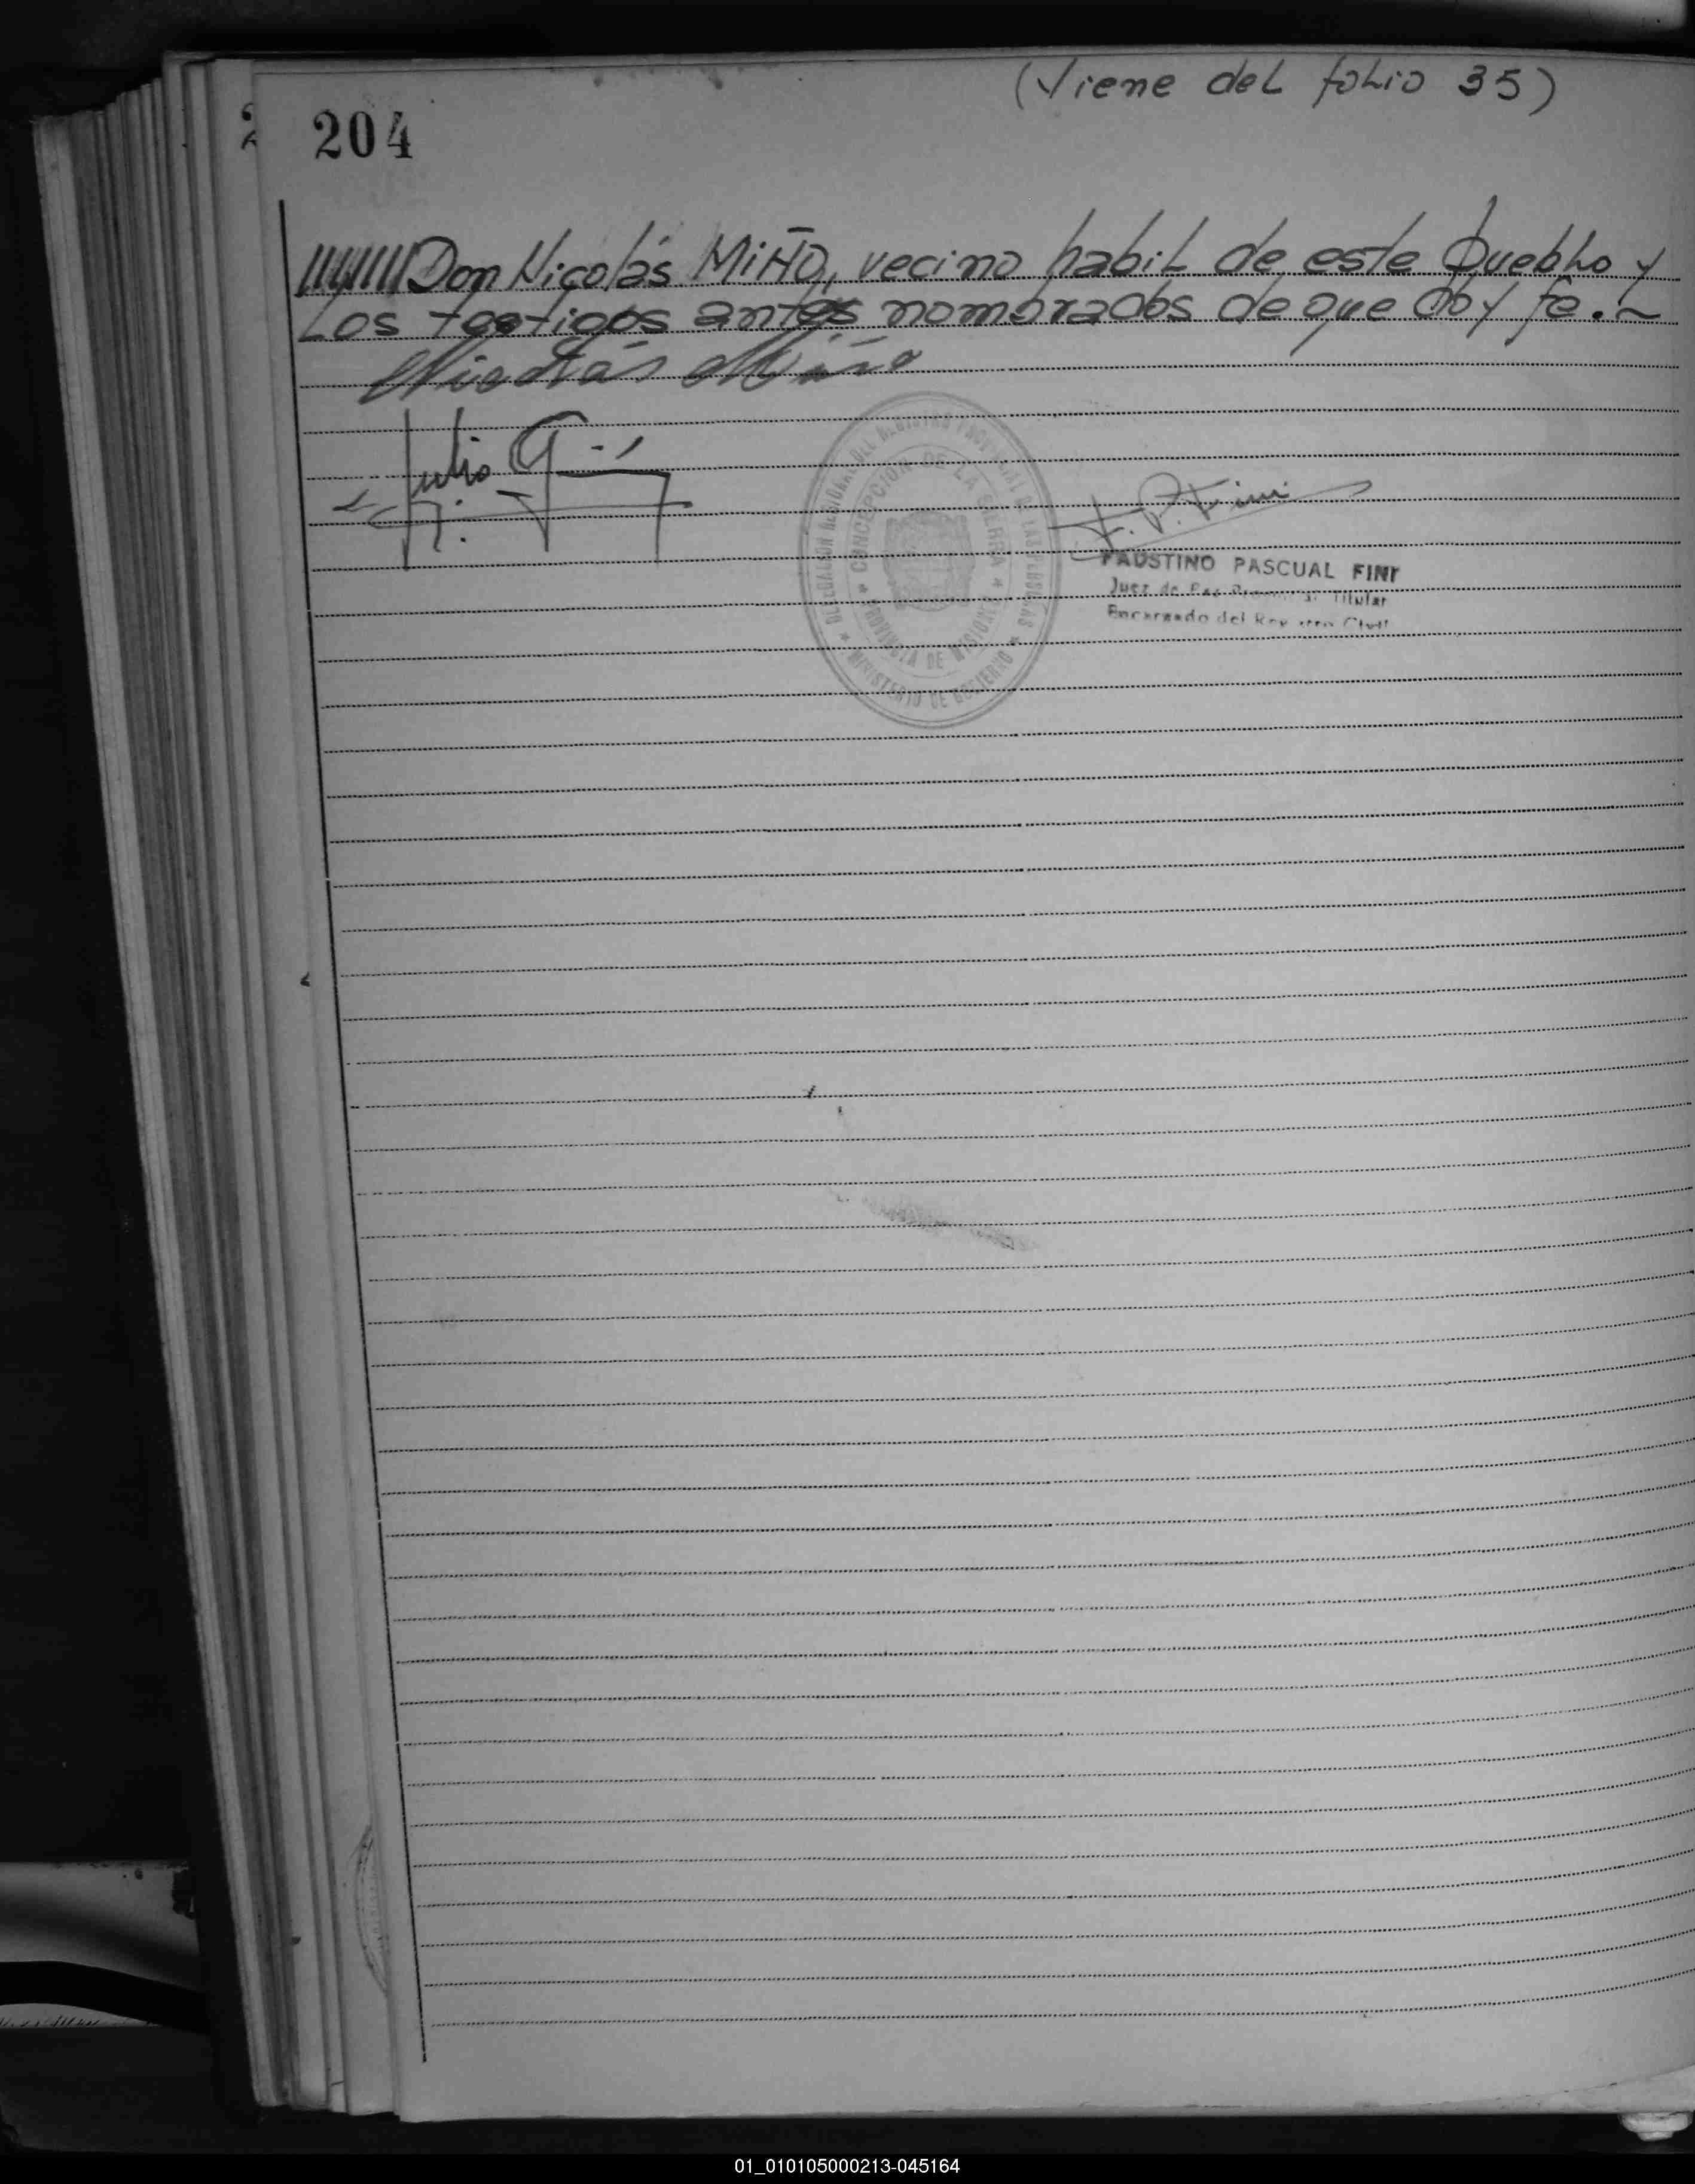 (Viene del folio 35)
204
////////Don Nicolás MIÑO, vecino habil de este Pueblo y
Los testigos antes nombrados de que doy fe.~
Nicolás Miño
Julio G
F. P. Fini
DELEGACION REGIONAL DEL REGISTRO PROVINCIAL DE LAS PERSONAS
* CONCEPCION DE LA SIERRA *
PROVINCIA DE MISIONES
* MINISTERIO DE GOBIERNO *
FAUSTINO PASCUAL FINI
Juez de Paz Titular
Encargado del Registro Civil
01_010105000213-045164